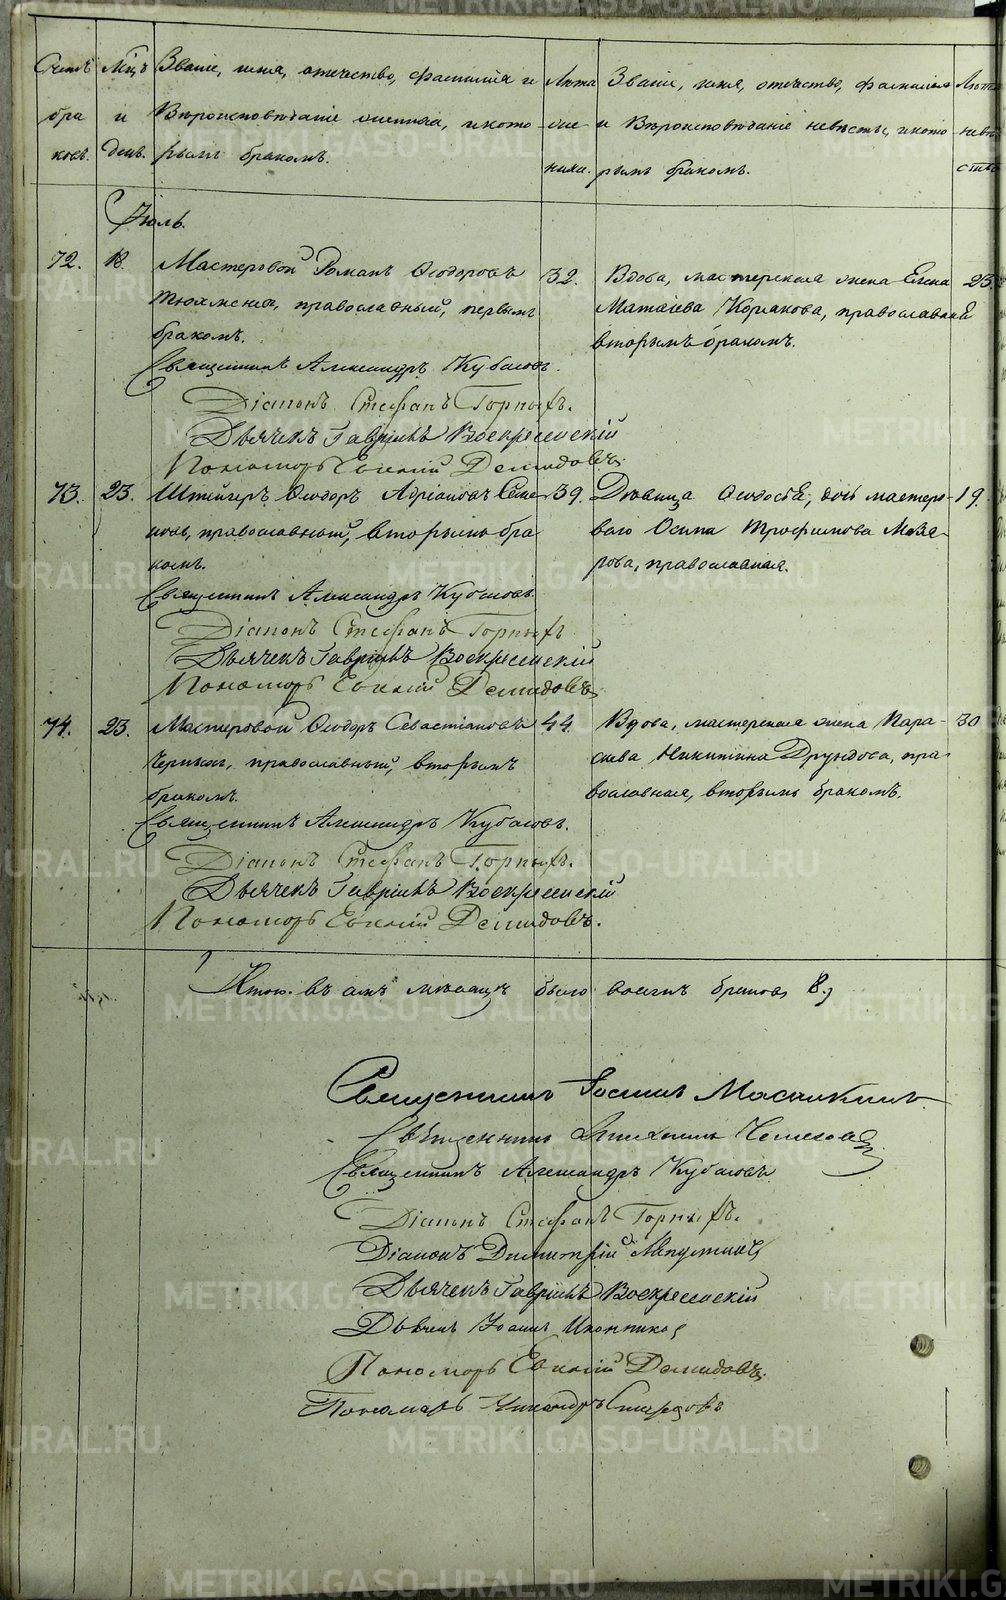 Счетъ бра ковъ.
Мѣцъ и день.
Званіе, имя, отчество, фамилія и
Вѣроисповѣданіе жениха, и кото-
рымъ бракомъ.
Лѣта же ниха.
Званіе, имя, отчество, фамилія
и Вѣроисповѣданіе невѣсты, и кото-
рымъ бракомъ.
Лѣта невѣ сты
Іюль.
72. 18. Мастеровой Романъ Ѳеодоровъ 32. Вдова, мастерская жена Елена 23.
православный, первымъ
бракомъ.
Матвіева Корякова, православная
вторымъ бракомъ.
Священникъ Александръ Кубасовъ.
Діаконъ Стефанъ Горныхъ.
Дьячекъ Гавріилъ Воскресенскій
Пономарь Евгеній Демидовъ.
73. 23. Штейгеръ Ѳеодоръ Адріановъ Семе- 39. Дѣвица Ѳеодосія, дочь мастеро- 19.
новъ, православный, вторымъ бра-
комъ.
ваго Осипа Трофимова
православная.
Священникъ Александръ Кубасовъ.
Діаконъ Стефанъ Горныхъ
Дьячекъ Гавріилъ Воскресенскій
Пономарь Евгеній Демидовъ.
74. 23. Мастеровой Ѳеодоръ Севастіановъ 44. Вдова, мастерская жена Пара- 30
православный, вторымъ
бракомъ.
скева Никитина Друндова, пра-
вославная, вторымъ бракомъ.
Священникъ Александръ Кубасовъ.
Діаконъ Стефанъ Горныхъ.
Дьячекъ Гавріилъ Воскресенскій
Пономарь Евгеній Демидовъ.
Итого въ мѣсяцѣ было всѣхъ браковъ 8.
Священникъ
Священникъ
Священникъ Александръ Кубасовъ
Діаконъ Стефанъ Горныхъ.
Діаконъ Димитрій
Дьячекъ Гавріилъ Воскресенскій
Дьячекъ Іоаннъ Иконниковъ
Пономарь Евгеній Демидовъ.
Пономарь
METRIKI.GASO-URAL.RU